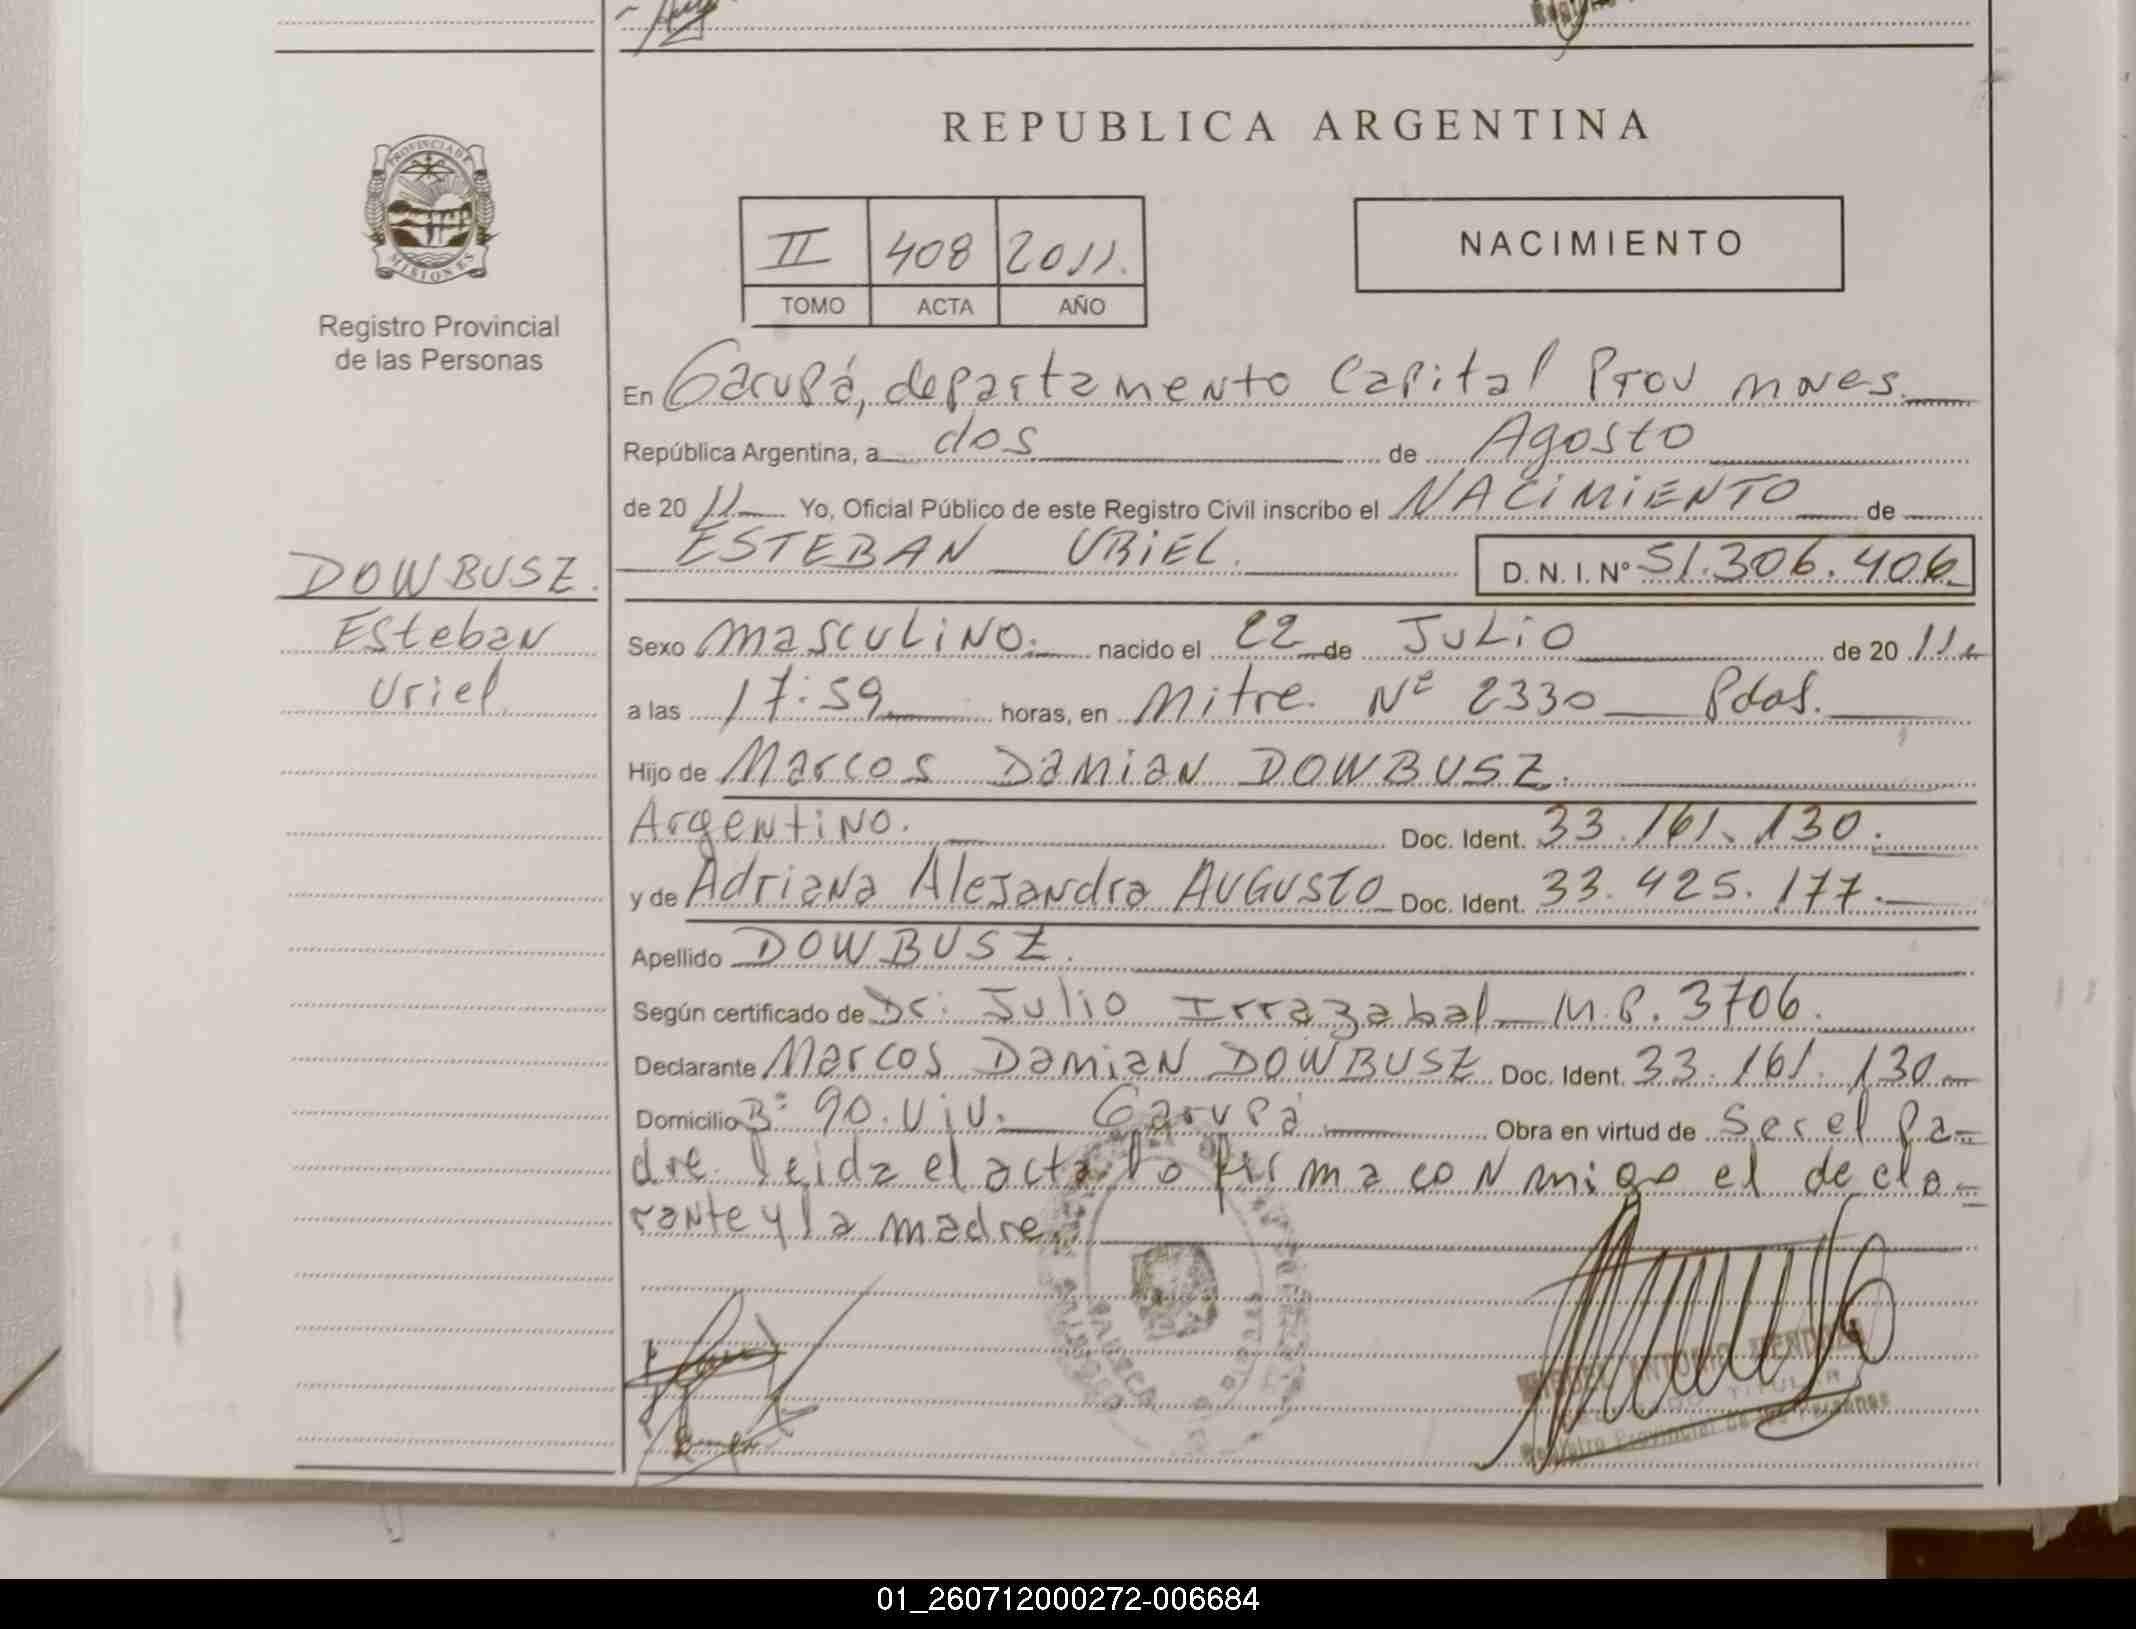 REPUBLICA ARGENTINA
PROVINCIA DE
MISIONES
Registro Provincial
de las Personas
II 408 2011.
TOMO ACTA AÑO
NACIMIENTO
En Garupá, departamento Capital Prov mnes.
República Argentina, a dos de Agosto
de 2011 Yo, Oficial Público de este Registro Civil inscribo el NACIMIENTO de
ESTEBAN URIEL. D. N. I. Nº 51.306.406
DOWBUSZ.
Esteban
Uriel
Sexo masculino. nacido el 22 de Julio de 2011
a las 17:59 horas, en Mitre. Nº 2330 Pdas.
Hijo de Marcos Damian DOWBUSZ.
Argentino. Doc. Ident. 33.161.130.
y de Adriana Alejandra AUGUSTO Doc. Ident. 33.425.177.
Apellido DOWBUSZ.
Según certificado de Dr: Julio Irrazabal M.P. 3706.
Declarante Marcos Damian DOWBUSZ Doc. Ident. 33.161.130
Domicilio Bº 90.Viv. Garupá Obra en virtud de Ser el Pa-
dre. leida el acta lo firma conmigo el decla-
rante y la madre.
MIGUEL ANTONIO MENDOZA
TITULAR
Registro Provincial de las Personas
01_260712000272-006684